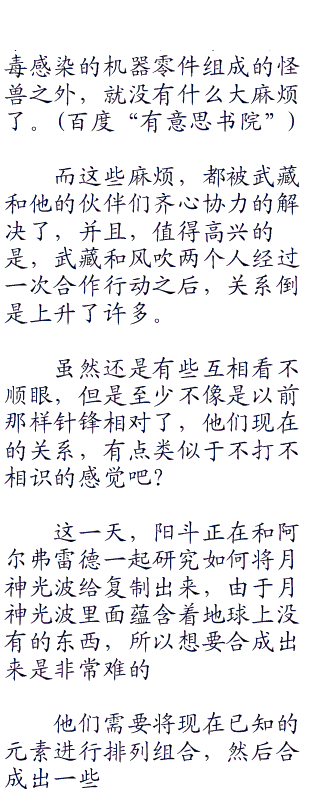 毒感染的机器零件组成的怪
兽之外，就没有什么大麻烦
了。(百度“有意思书院”)
而这些麻烦，都被武藏
和他的伙伴们齐心协力的解
决了，并且，值得高兴的
是，武藏和风吹两个人经过
一次合作行动之后，关系倒
是上升了许多。
虽然还是有些互相看不
顺眼，但是至少不像是以前
那样针锋相对了，他们现在
的关系，有点类似于不打不
相识的感觉吧?
这一天，阳斗正在和阿
尔弗雷德一起研究如何将月
神光波给复制出来，由于月
神光波里面蕴含着地球上没
有的东西，所以想要合成出
来是非常难的
他们需要将现在已知的
元素进行排列组合，然后合
成出一些